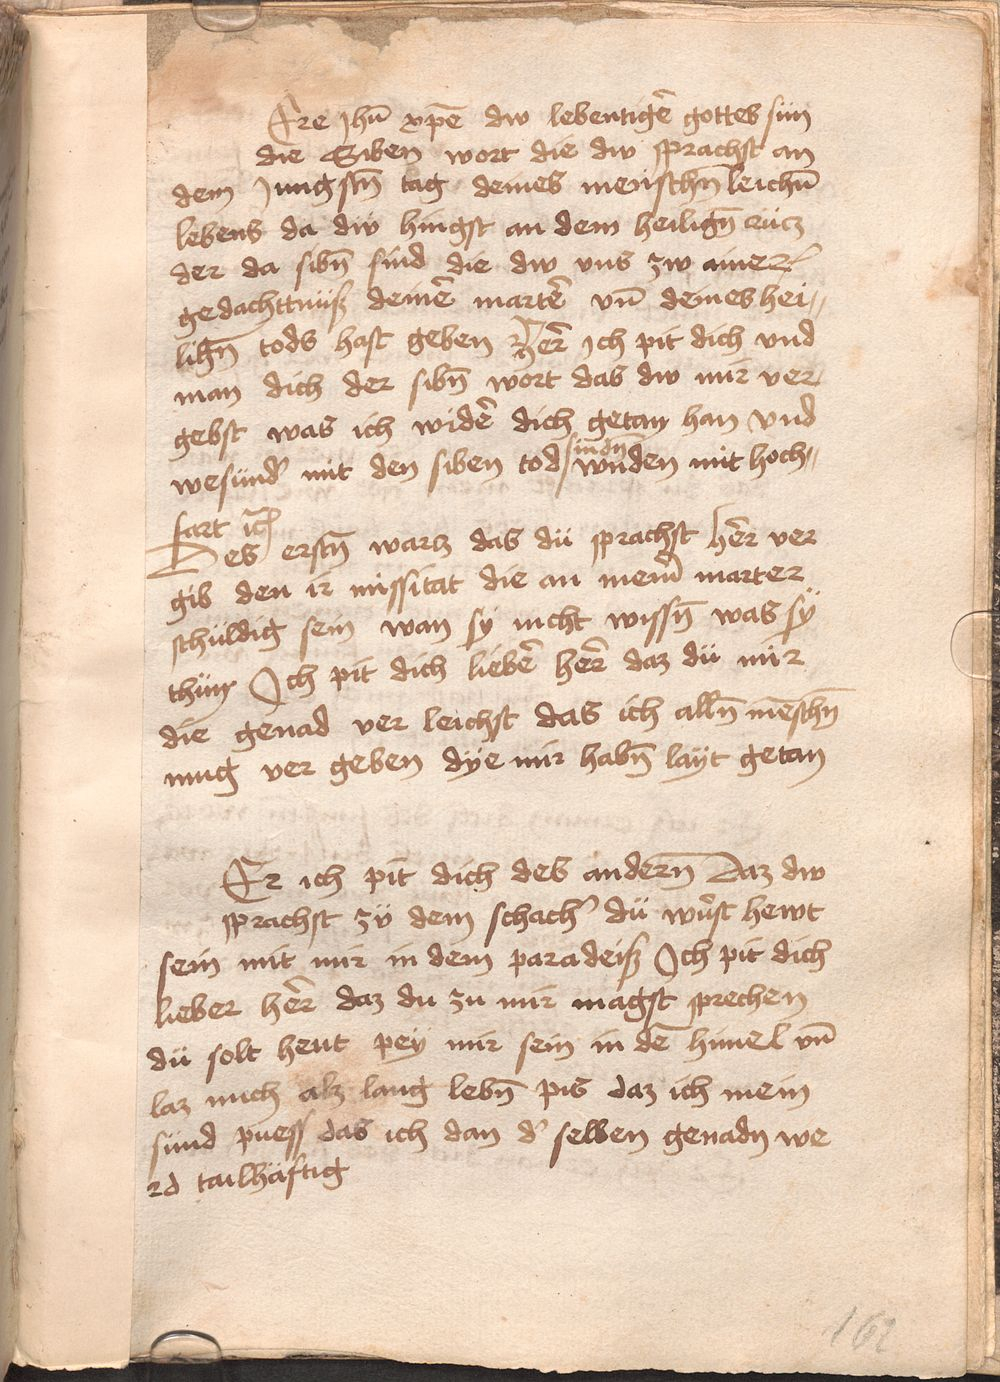 Ere Jhū xp̄e dw lebentigē gottes sün
die Siben wort die dw sprachst an
dem Jungstn̄ tag deines menschn̄ leichn̄
lebens da dw hingst an dem heilign̄ cücz
der da sibn̄ sind die dw vns zw ainer
gedachttnüsz deinē martē vn̄ deines hei〃
lign̄ tods hast geben Her̄ Jch pit dich vnd
man dich der sibn̄ wort das dw mir ver
gebst was ich widē dich getan han vnd
wesünd' mit den siben tod sundn̄ wnden mit hoch〃
fart ꝛc̄
Des erstn̄ wartz das dü sprachst her̄ ver
gib den ir missitat die an mein̄ marter
schüldig sein wan sy nicht wissn̄ was sÿ
thün Jch pit dich liebē her̄ daz dü mir
die genad ver leichst das ich alln̄ mēschn̄
mug ver geben dÿe mir habn̄ laÿt getan
Er ich pit dich des andern̄ Daz dw
sprachst zü dem schach' dü wirst hewt
sein mit mir in dem paradeisz Jch pit dich
lieber her̄ daz du zu mir magst sprechen
dü solt heut peÿ mir sein in dē himel vn̄
laz mich alz lang lebn̄ pis daz ich mein
sünd puess das ich dan d' selben genadn we
rd tailhäftig
162